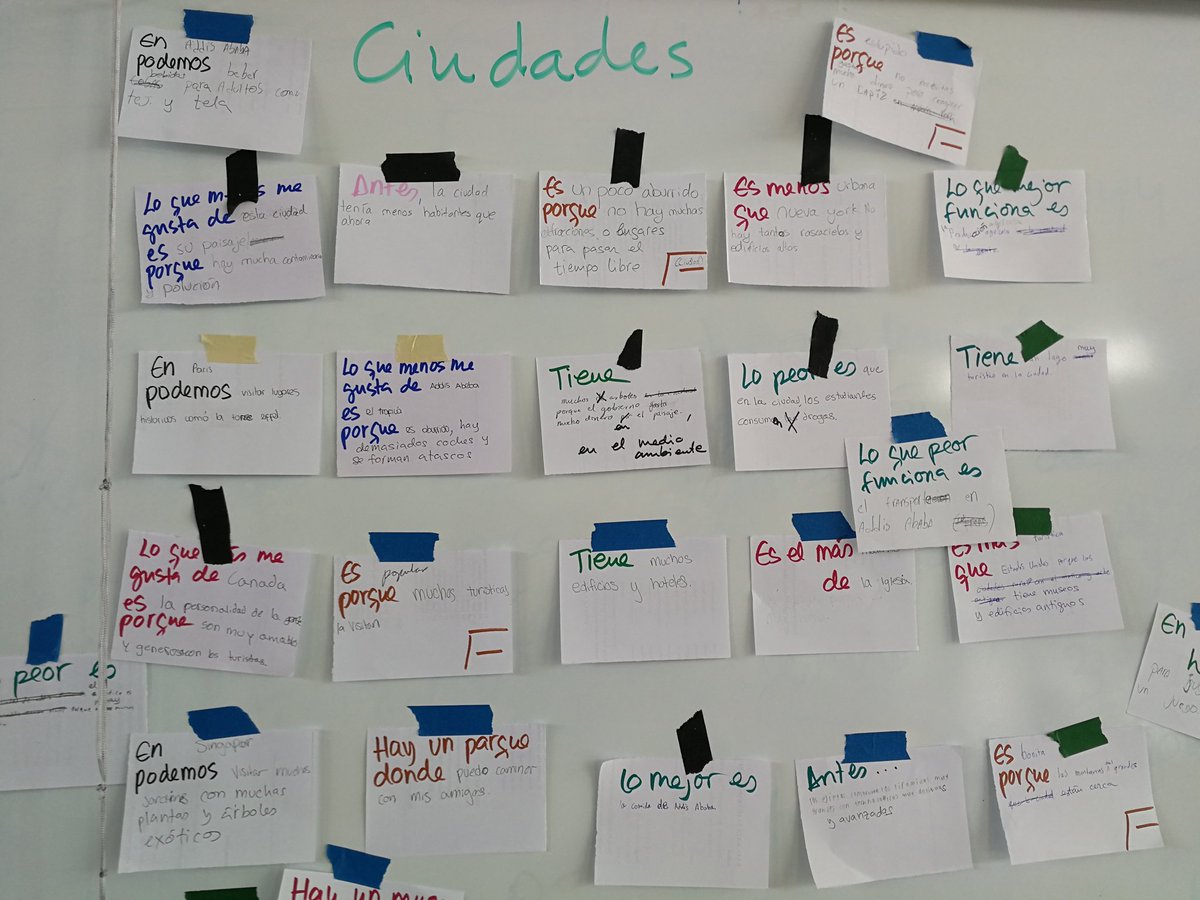 Ciudades
En Addis Ababa
podemos beber
bebidas
para Adultos como
tej y tela
Es estupido
porque no necesitas
mucho dinero para comprar
un LAPIZ
F
Lo que menos me
gusta de esta ciudad
es su paisaje
porque hay mucha contaminacion
y polución
Antes, la ciudad
tenía menos habitantes que
ahora
Es un poco aburrido
porque no hay muchas
atracciones o lugares
para pasar el
tiempo libre
F (ciudad)
Es menos urbana
que nueva york No
hay tantos rascacielos y
edificios altos
Lo que mejor
funciona es
En Paris
podemos visitar lugares
historicos como la torre
Lo que menos me
gusta de Addis Ababa
es el
porque es aburrido, hay
demasiados coches y
se forman atascos
Tiene
muchos arboles
porque el gobierno gasta
mucho dinero el paisaje.
en
en el medio
ambiente
Lo peor es que
en la ciudad los estudiantes
consumen drogas.
Tiene un lago muy
turistico en la ciudad.
Lo que peor
funciona es
el transporte en
Addis Ababa
Lo que más me
gusta de Canada
es la personalidad de la gente
porque son muy amables
y generosos con los turistas
Es popular
porque muchos turisticas
la visitan
F
Tiene muchos
edificios y hoteles.
Es el más
de la iglesia
Es más
que Estados Unidos porque los
tiene museos
y edificios antiguos
En
para
un
peor es
En Singapor
podemos visitar muchos
jardines con muchas
plantas y árboles
exóticos
Hay un parque
donde puedo caminar
con mis amigos.
Lo mejor es
la comida de Addis Ababa.
Antes...
y avanzadas
Es bonita
porque las montañas grandes
están cerca
F
Hay un